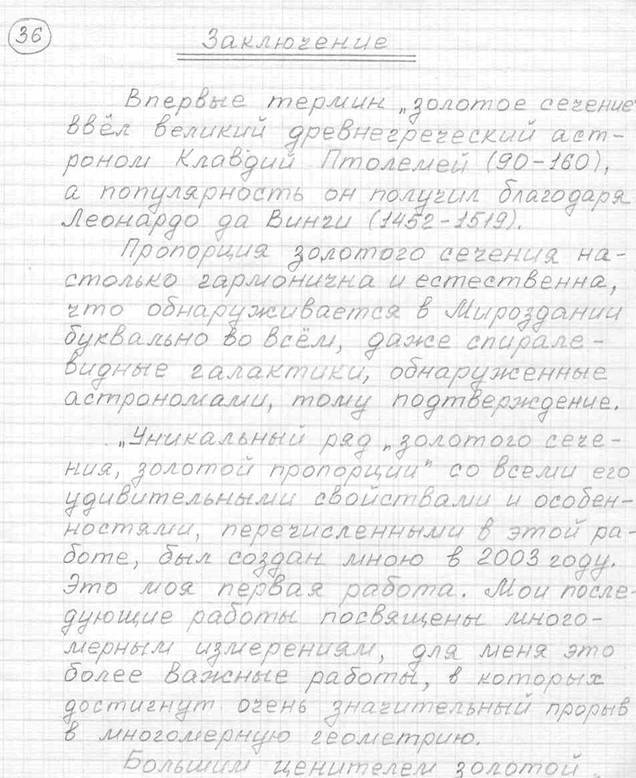 36
Заключение
Впервые термин „золотое сечение"
ввёл великий древнегреческий аст-
роном Клавдий Птолемей (90-160),
а популярность он получил благодаря
Леонардо да Винчи (1452-1519).
Пропорция золотого сечения на-
столько гармонична и естественна,
что обнаруживается в Мироздании
буквально во всём, даже спирале-
видные галактики, обнаруженные
астрономами, тому подтверждение.
„Уникальный ряд „золотого сече-
ния, золотой пропорции" со всеми его
удивительными свойствами и особен-
ностями, перечисленными в этой ра-
боте, был создан мною в 2003 году.
Это моя первая работа. Мои после-
дующие работы посвящены много-
мерным измерениям, для меня это
более важные работы, в которых
достигнут очень значительный прорыв
в многомерную геометрию.
Большим ценителем золотой